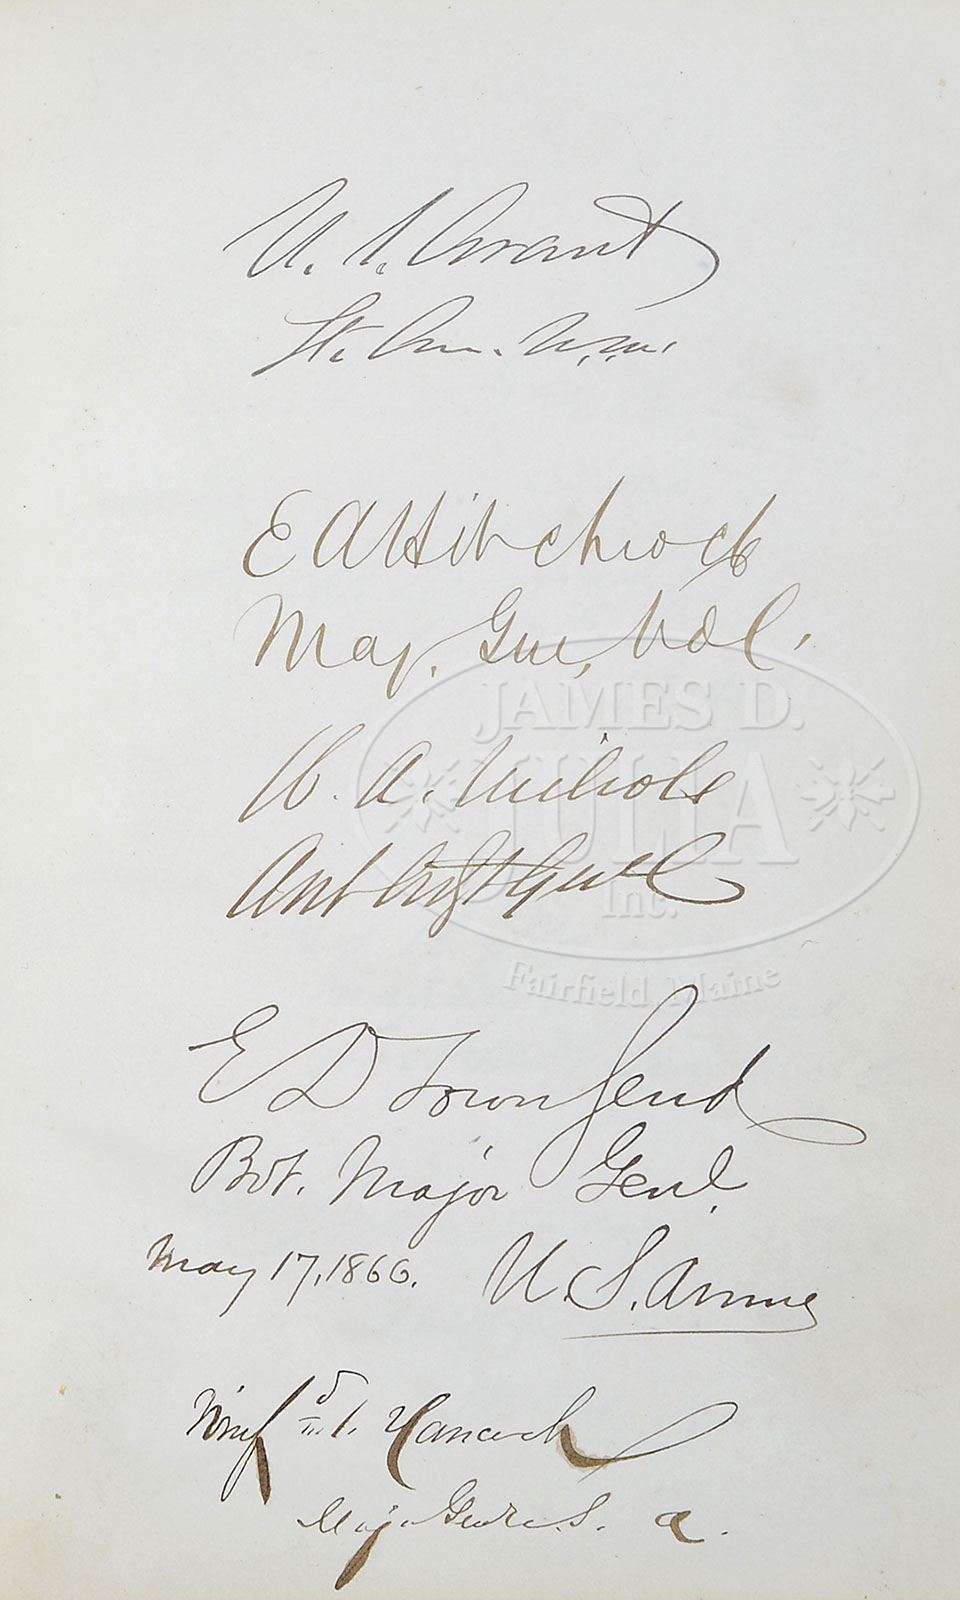 U. S. Grant
Lt. Gen. U.S.A.
E A Hitchcock
Maj. Gen, Vol.
JAMES D.
JULIA
Inc.
Fairfield, Maine
W. A. Nichols
E D Townsend
Bvt. Major Genl.
May 17, 1866. U. S. Army
Winf'd S. Hancock
Major Genl U. S. A.